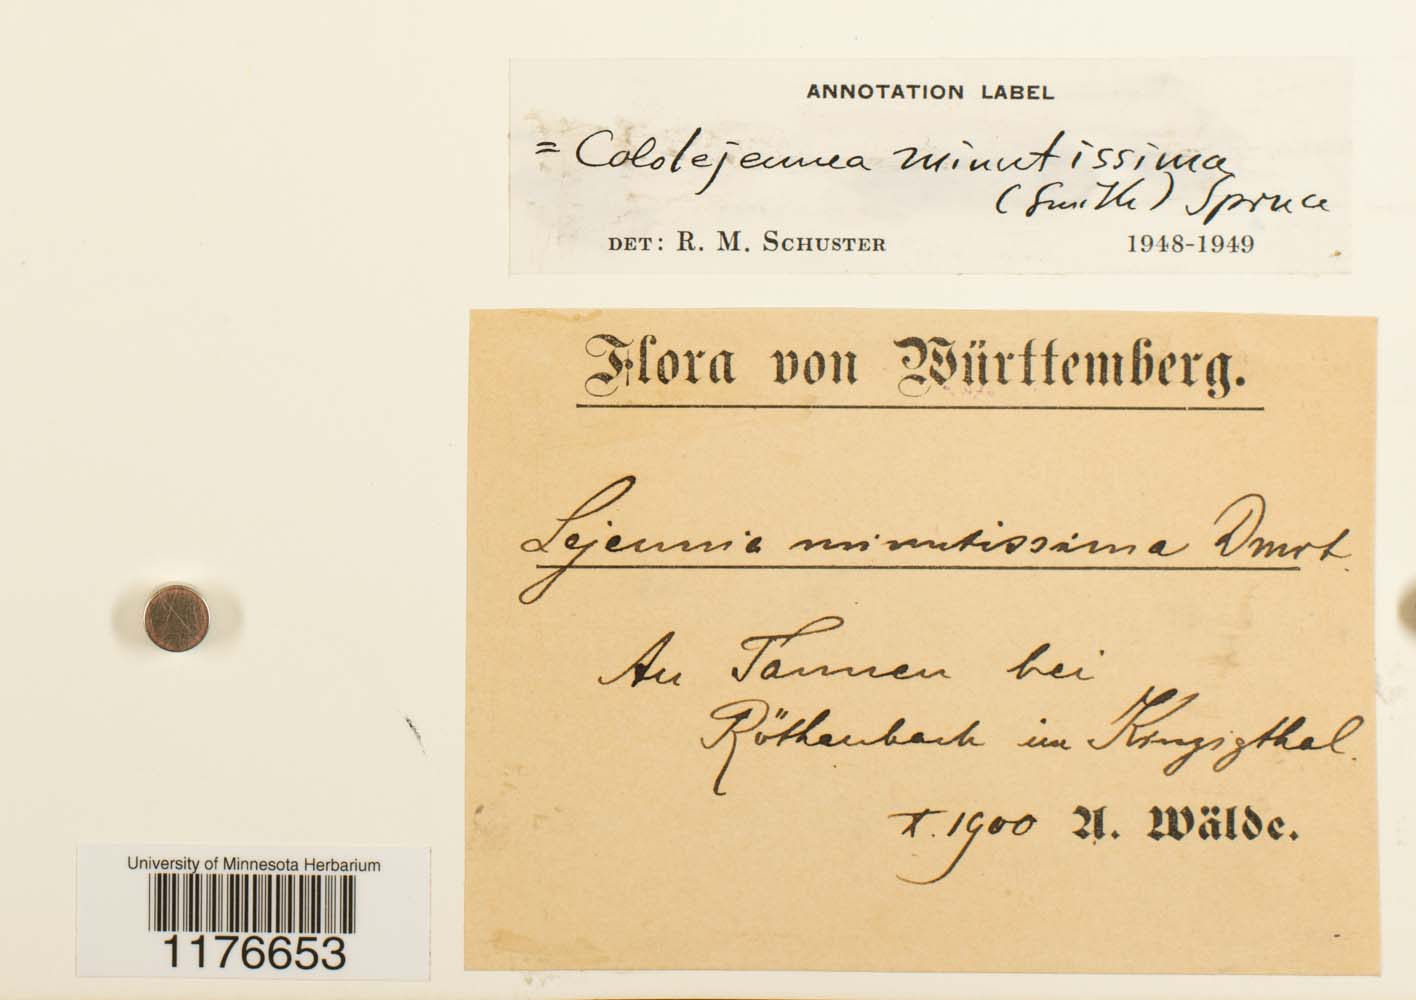 ANNOTATION LABEL
= Cololejeunea minutissima
(Smith) Spruce
DET: R. M. SCHUSTER 1948-1949
Flora von Württemberg.
Lejeunia minutissima Dmrt.
An Tannen bei
Röthenbach im Kinzigthal.
X. 1900 A. Wälde.
University of Minnesota Herbarium
1176653